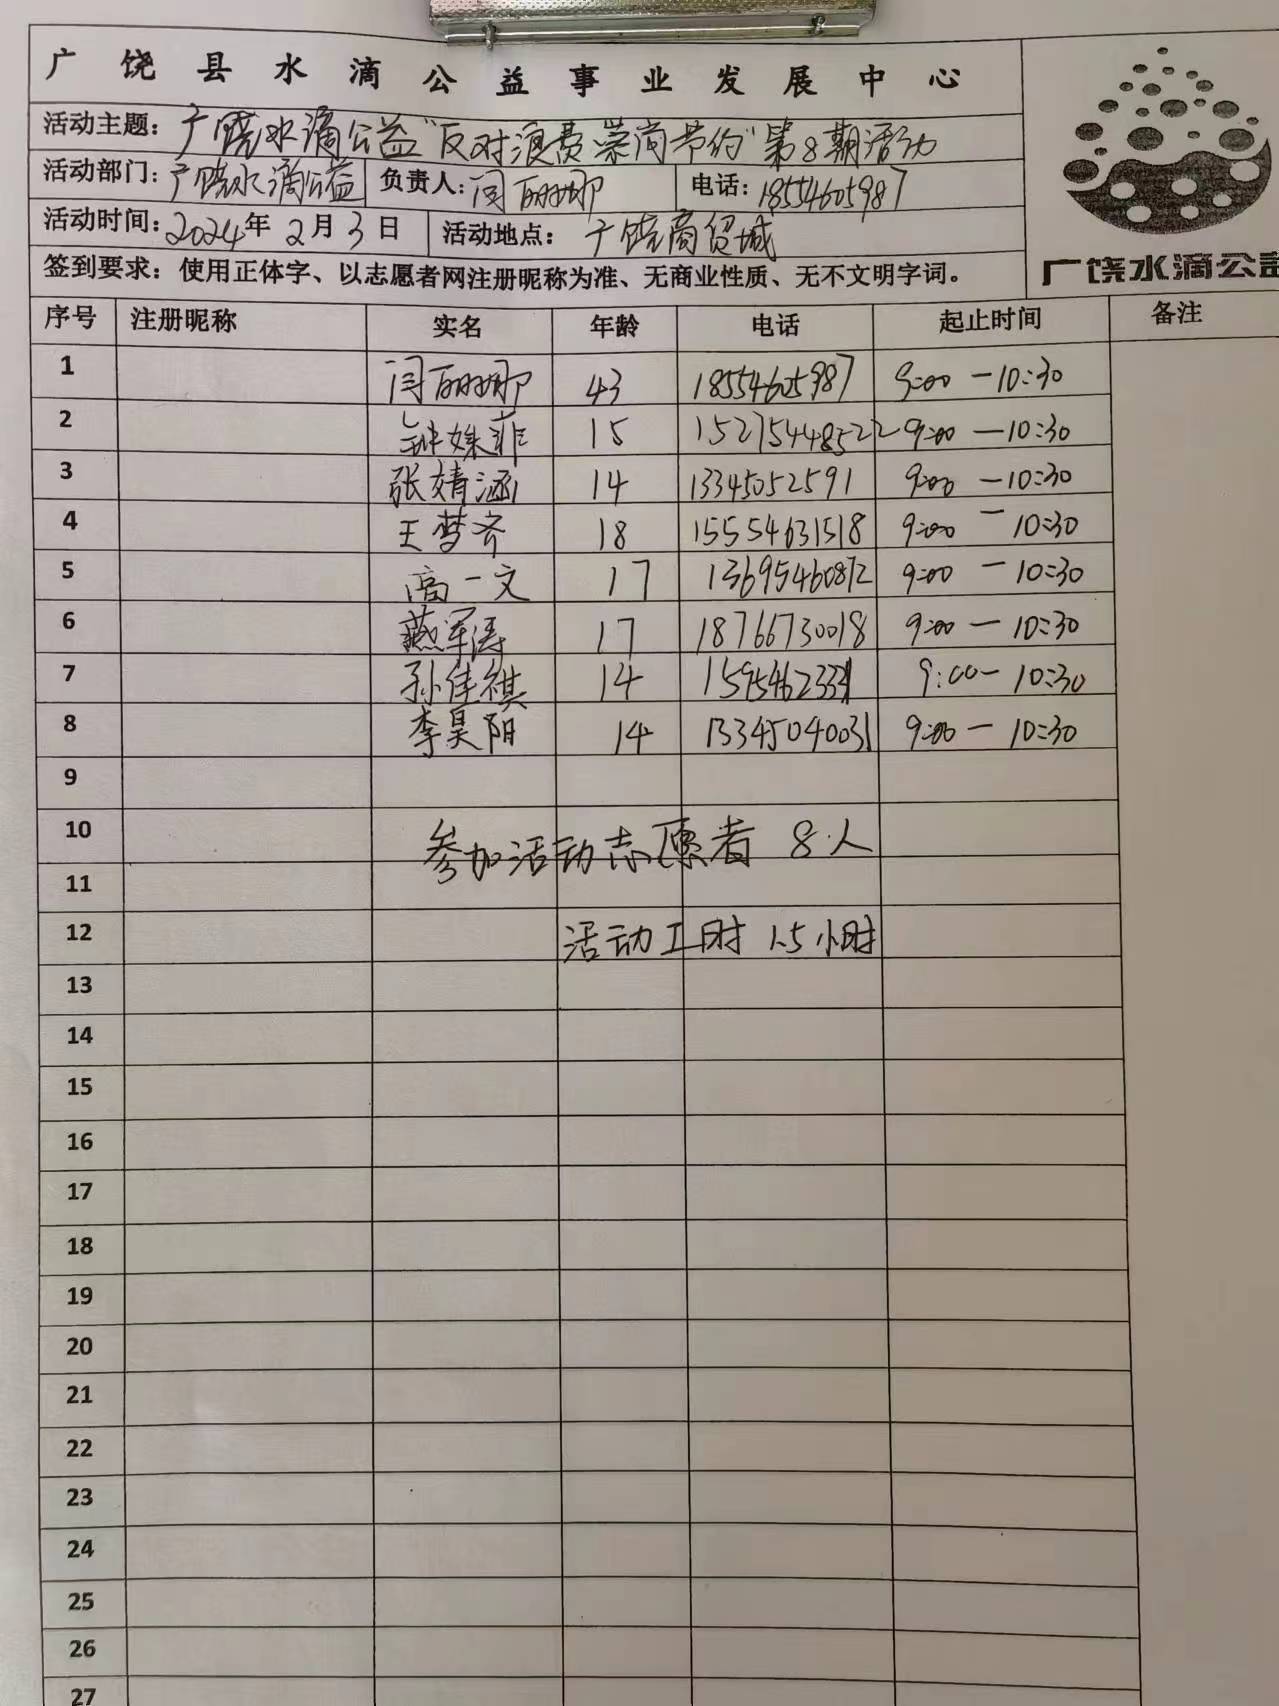 广饶县水滴公益事业发展中心
活动主题：广饶水滴公益"反对浪费崇尚节约"第8期活动
活动部门：广饶水滴公益 负责人：闫丽娜 电话：18554605987
活动时间：2024年2月3日 活动地点：广饶商贸城
签到要求：使用正体字、以志愿者网注册昵称为准、无商业性质、无不文明字词。
广饶水滴公益
序号 注册昵称 实名 年龄 电话 起止时间 备注
1 闫丽娜 43 18554605987 9:00—10:30
2 钟姝菲 15 15275448522 9:00—10:30
3 张婧涵 14 13345052591 9:00—10:30
4 王梦齐 18 15554631518 9:00—10:30
5 高一文 17 13695460872 9:00—10:30
6 燕军涛 17 18766730018 9:00—10:30
7 孙佳祺 14 9:00—10:30
8 李昊阳 14 13345040031 9:00—10:30
9
10 参加活动志愿者 8人
11
12 活动工时 1.5小时
13
14
15
16
17
18
19
20
21
22
23
24
25
26
27